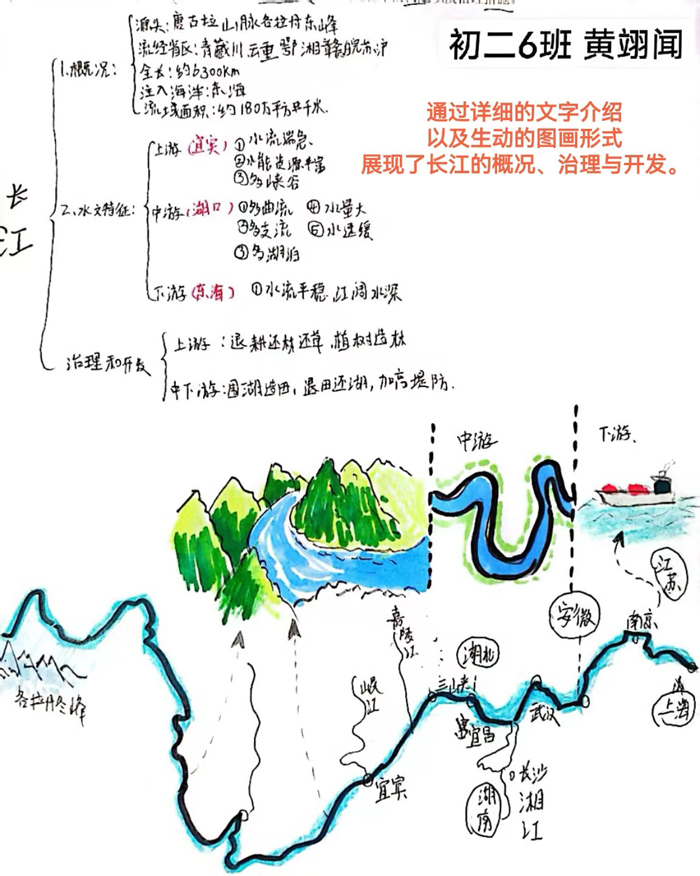 初二6班 黄翊闻
通过详细的文字介绍
以及生动的图画形式
展现了长江的概况、治理与开发。
长江
1.概况：
源头：唐古拉山脉各拉丹东峰
流经省区：青藏川云重鄂湘赣皖苏沪
全长：约6300km
注入海洋：东海
流域面积：约180万平方千米.
2.水文特征：
上游(宜宾) ①水流湍急、
②水能资源丰富
③多峡谷
中游(湖口) ①多曲流 ④水量大
②多支流 ⑤水速缓
③多湖泊
下游(东海) ①水流平稳.江阔水深
治理和开发
上游：退耕还林还草,植树造林
中下游:围湖造田,退田还湖,加高堤防.
中游
下游、
江苏
安徽
南京
嘉陵江
湖北
三峡
岷江
各拉丹冬峰
宜昌
武汉
上海
宜宾
长沙
湘江
湖南